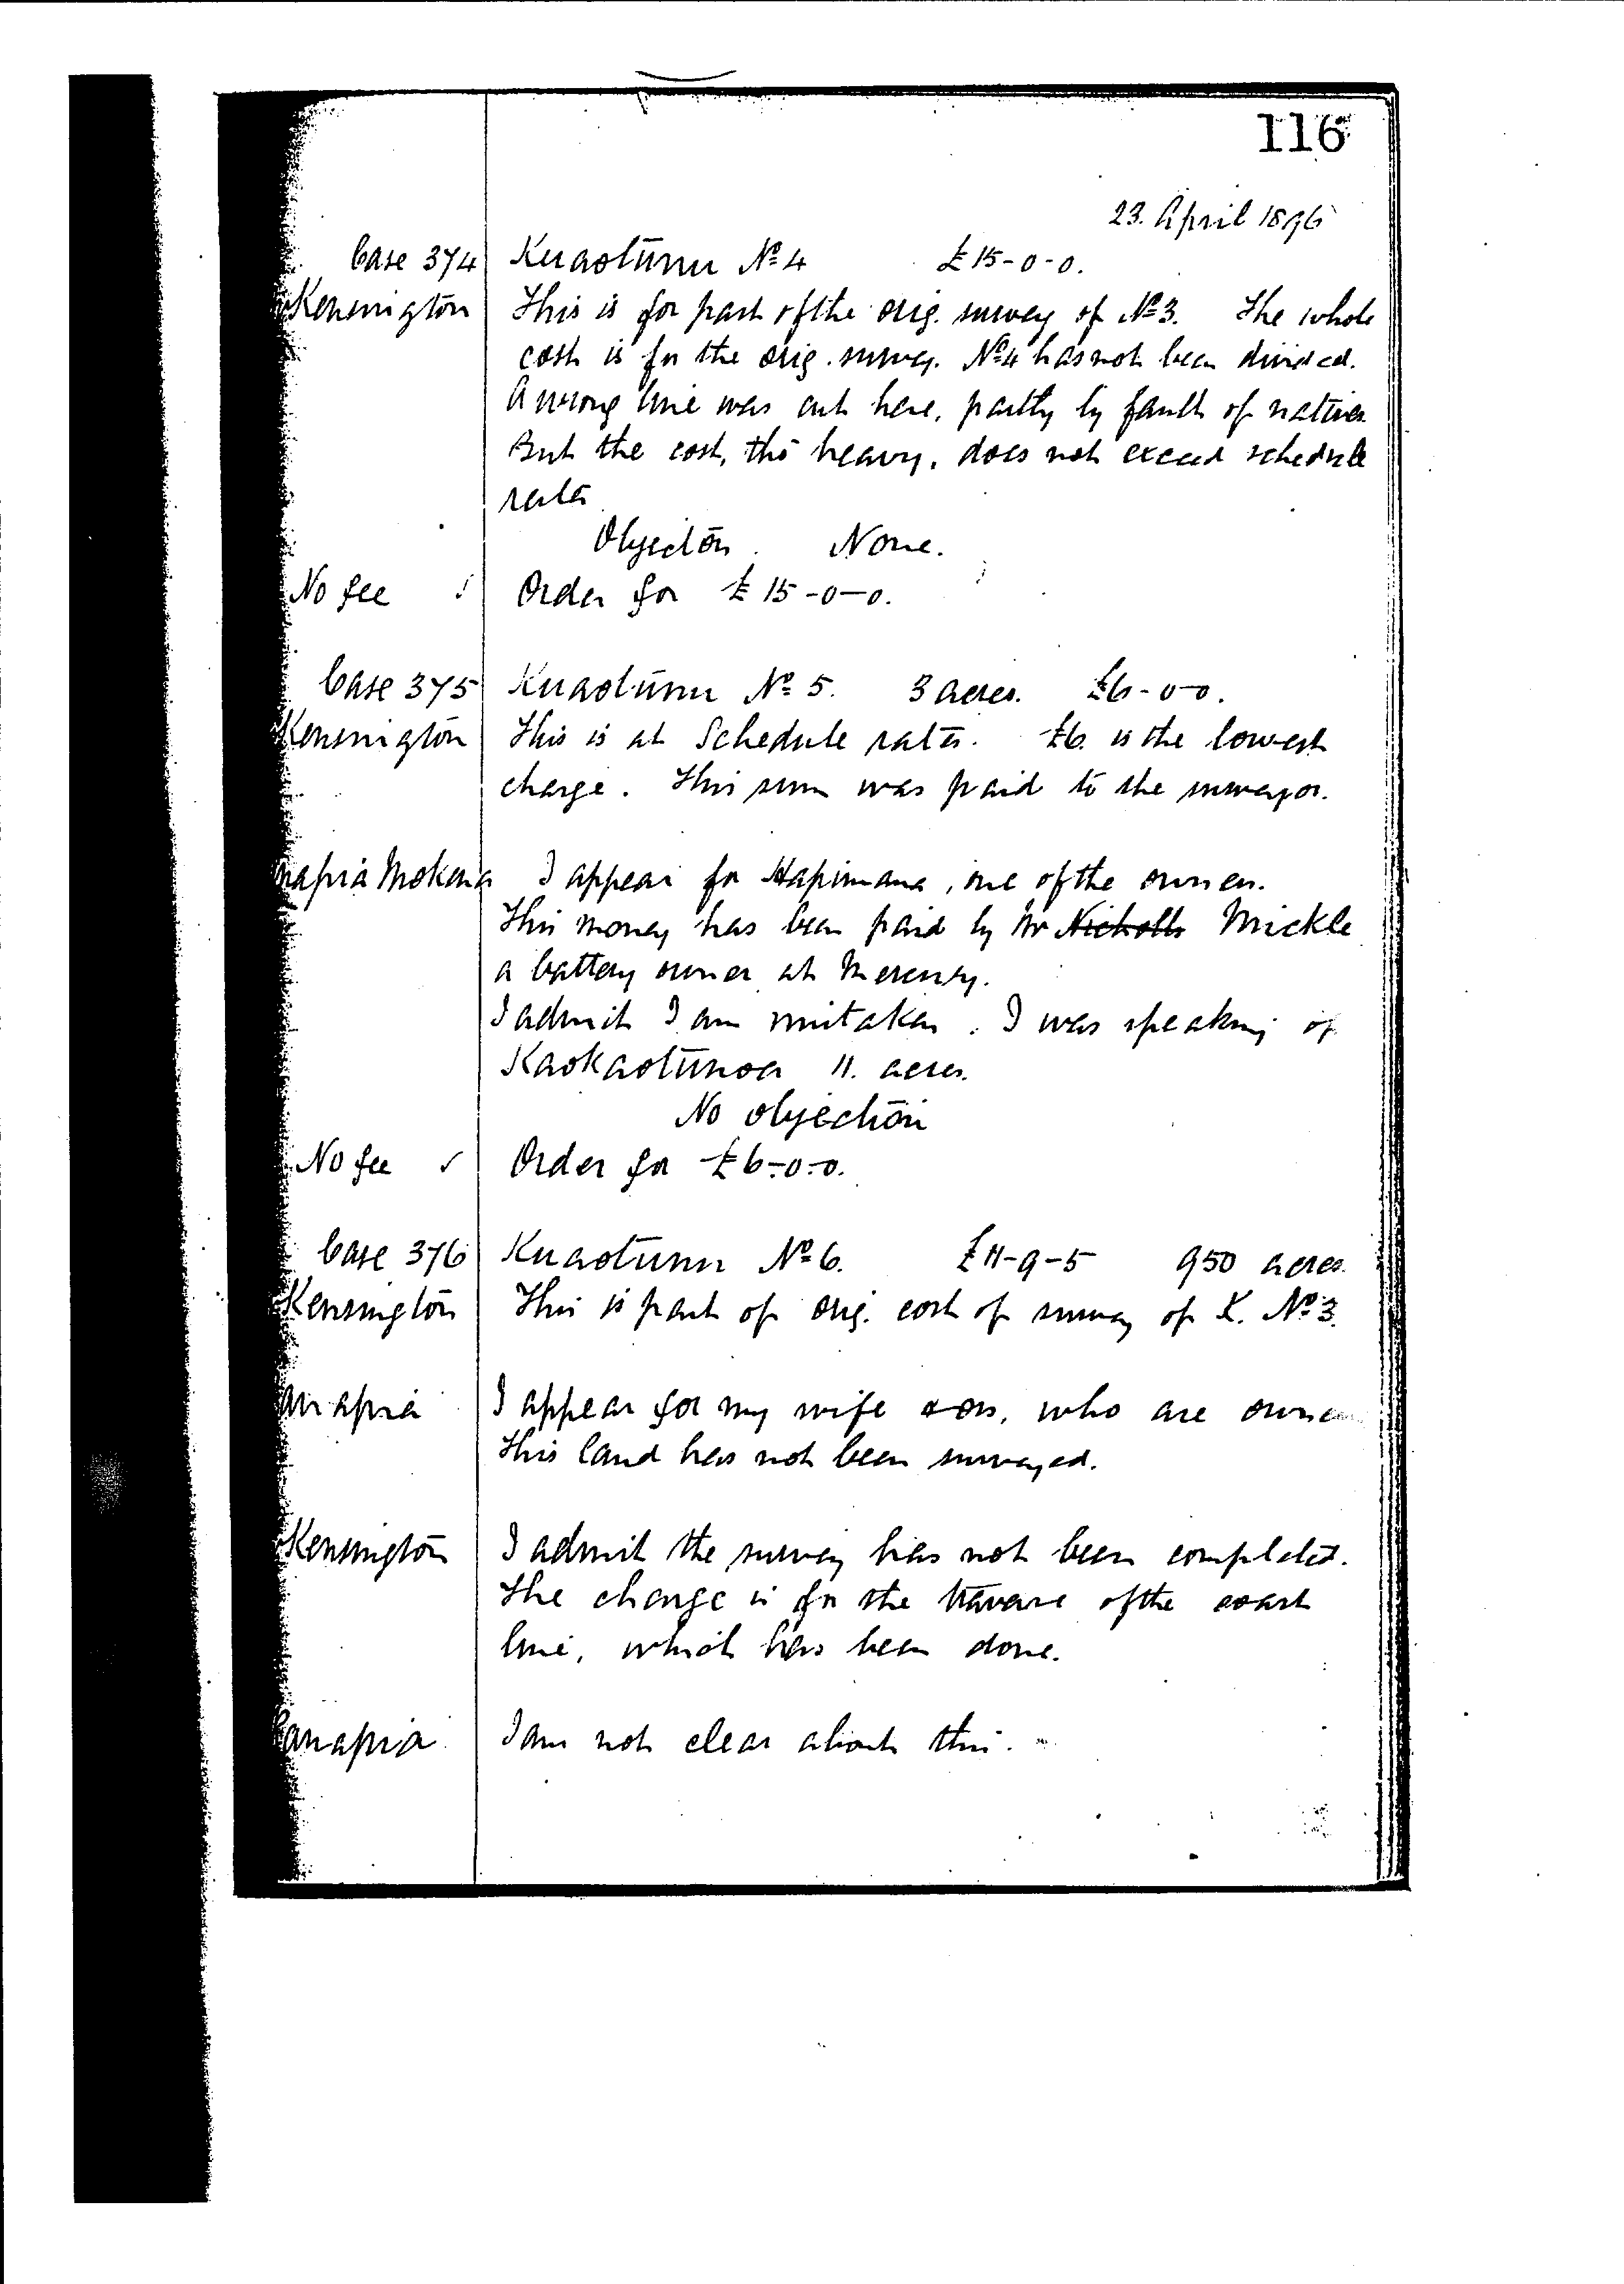 116
23. April 1896
Case 374 Kuaotunu No 4 £15-0-0.
Kensington This is for part of the orig. survey of No 3. The whole
cost is for the orig. survey. No 4 has not been divided.
A wrong line was cut here, partly by fault of natives.
But the cost, tho' heavy, does not exceed schedule
rates
Objection. None.
No fee Order for £15-0-0.
Case 375 Kuaotunu No 5. 3 acres. £6-0-0.
Kensington This is at Schedule rates. £6. is the lowest
charge. This sum was paid to the surveyor.
anapia Mokena I appear for Hapimana, one of the owners.
This money has been paid by Mr Nicholls Mickle
a battery owner at Mercury.
I admit I am mistaken. I was speaking of
Kaokaotunoa 11. acres.
No objection
No fee ✓ Order for £6-0-0.
Case 376 Kuaotunu No 6. £11-9-5 950 acres.
Kensington This is part of orig. cost of survey of K. No 3.
anapia I appear for my wife & ors, who are owners
This land has not been surveyed.
Kensington I admit the survey has not been completed.
The charge is for the traverse of the coast
line, which has been done.
anapia I am not clear about this.